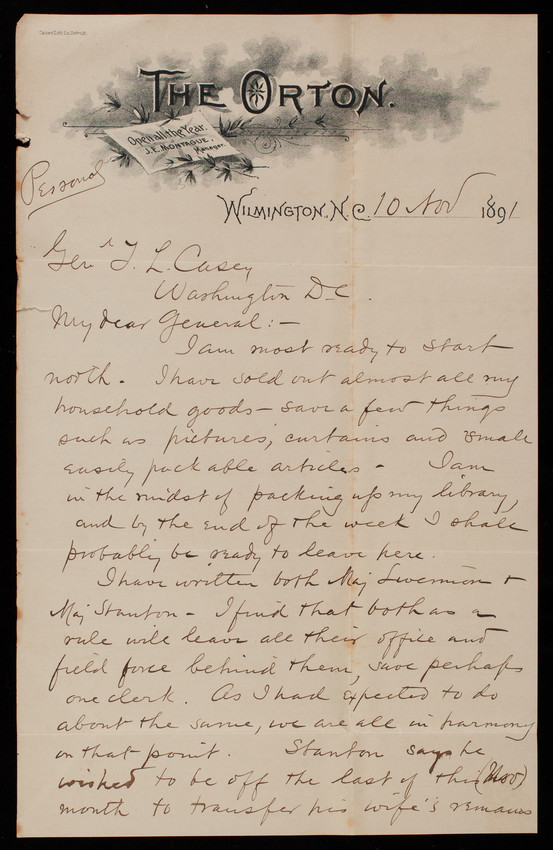 Calvert Lith. Co. Detroit.
THE ORTON.
Open all the Year.
J. E. MONTAGUE,
Manager.
Personal
WILMINGTON, N.C. 10 Nov 1891
Genl T. L. Casey
Washington D.C.
My dear General:-
I am most ready to start
north. I have sold out almost all my
household goods - save a few things
such as pictures, curtains and small
easily packable articles - I am
in the midst of packing up my library,
and by the end of the week I shall
probably be ready to leave here.
I have written both Maj +
Maj Stanton - I find that both as a
rule will leave all their office and
field force behind them, save perhaps
one clerk. As I had expected to do
about the same, we are all in harmony
on that point. Stanton says he
wished to be off the last of this (Nov)
month to transfer his wife's remains